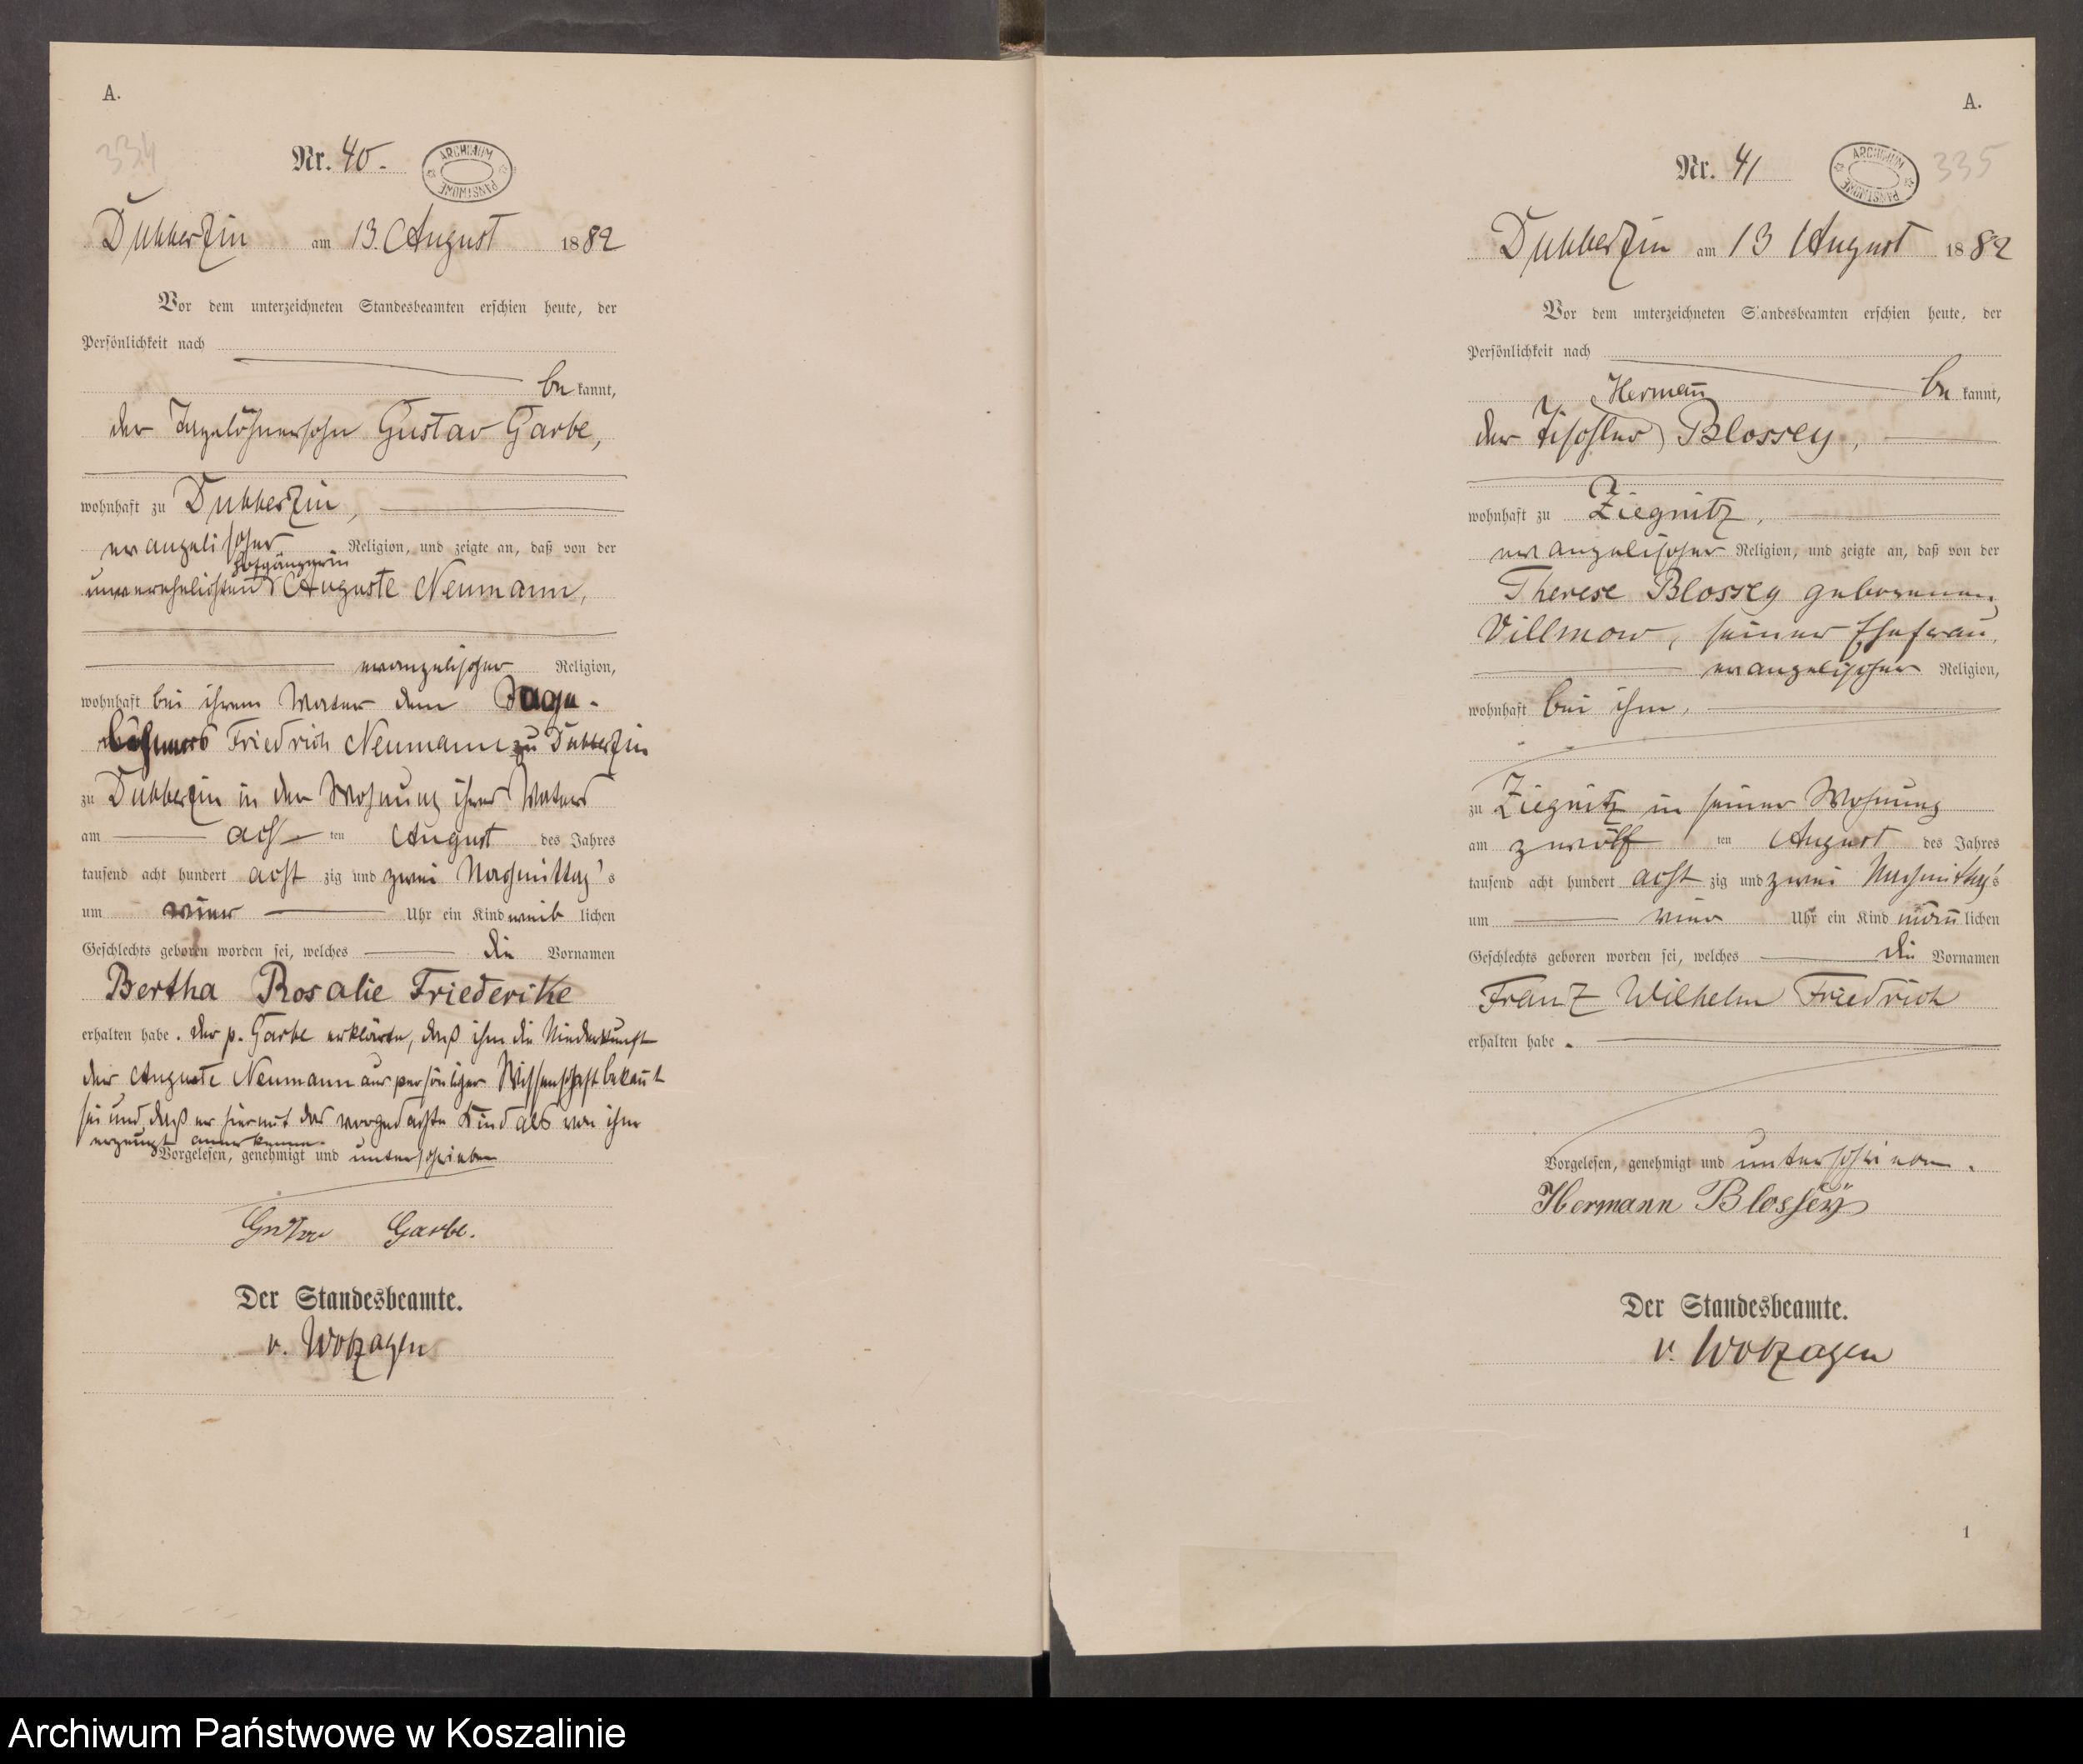 A.
334
Nr. 40.
ARCHIWUM PAŃSTWOWE
Dubberzin am 13. August 1882
Vor dem unterzeichneten Standesbeamten erschien heute, der
Persönlichkeit nach
be kannt,
der Tagelöhnersohn Gustav Garbe,
wohnhaft zu Dubberzin,
evangelischer Religion, und zeigte an, daß von der
Hofgängerin
unverehelichten Auguste Neumann,
evangelischer Religion,
wohnhaft bei ihrem Vater dem Tage-
löhner Friedrich Neumann zu Dubberzin
zu Dubberzin in der Wohnung ihres Vaters
am acht ten August des Jahres
tausend acht hundert acht zig und zwei Nachmittag's
um vier Uhr ein Kind weib lichen
Geschlechts geboren worden sei, welches die Vornamen
Bertha Rosalie Friederike
erhalten habe. Der p. Garbe erklärte, daß ihm die Niederkunft
der Auguste Neumann aus persönlicher Wissenschaft bekañt
sei und daß er hiermit das vorgedachte Kind als von ihm
erzeugt anerkenne.
Vorgelesen, genehmigt und unterschrieben
Gustav Garbe.
Der Standesbeamte.
v. Woizagen
A.
Nr. 41
ARCHIWUM PAŃSTWOWE
335
Dubberzin am 13 August 1882
Vor dem unterzeichneten Standesbeamten erschien heute, der
Persönlichkeit nach
be kannt,
Hermañ
der Tischler Blossey,
wohnhaft zu Ziegnitz,
evangelischer Religion, und zeigte an, daß von der
Therese Blossey geborenen
Villmow, seiner Ehefrau,
evangelischer Religion,
wohnhaft bei ihm,
zu Ziegnitz in seiner Wohnung
am zwölf ten August des Jahres
tausend acht hundert acht zig und zwei Nachmittag's
um vier Uhr ein Kind mäñ lichen
Geschlechts geboren worden sei, welches die Vornamen
Franz Wilhelm Friedrich
erhalten habe.
Vorgelesen, genehmigt und unterschrieben.
Hermann Blossey
Der Standesbeamte.
v. Woizagen
1
Archiwum Państwowe w Koszalinie